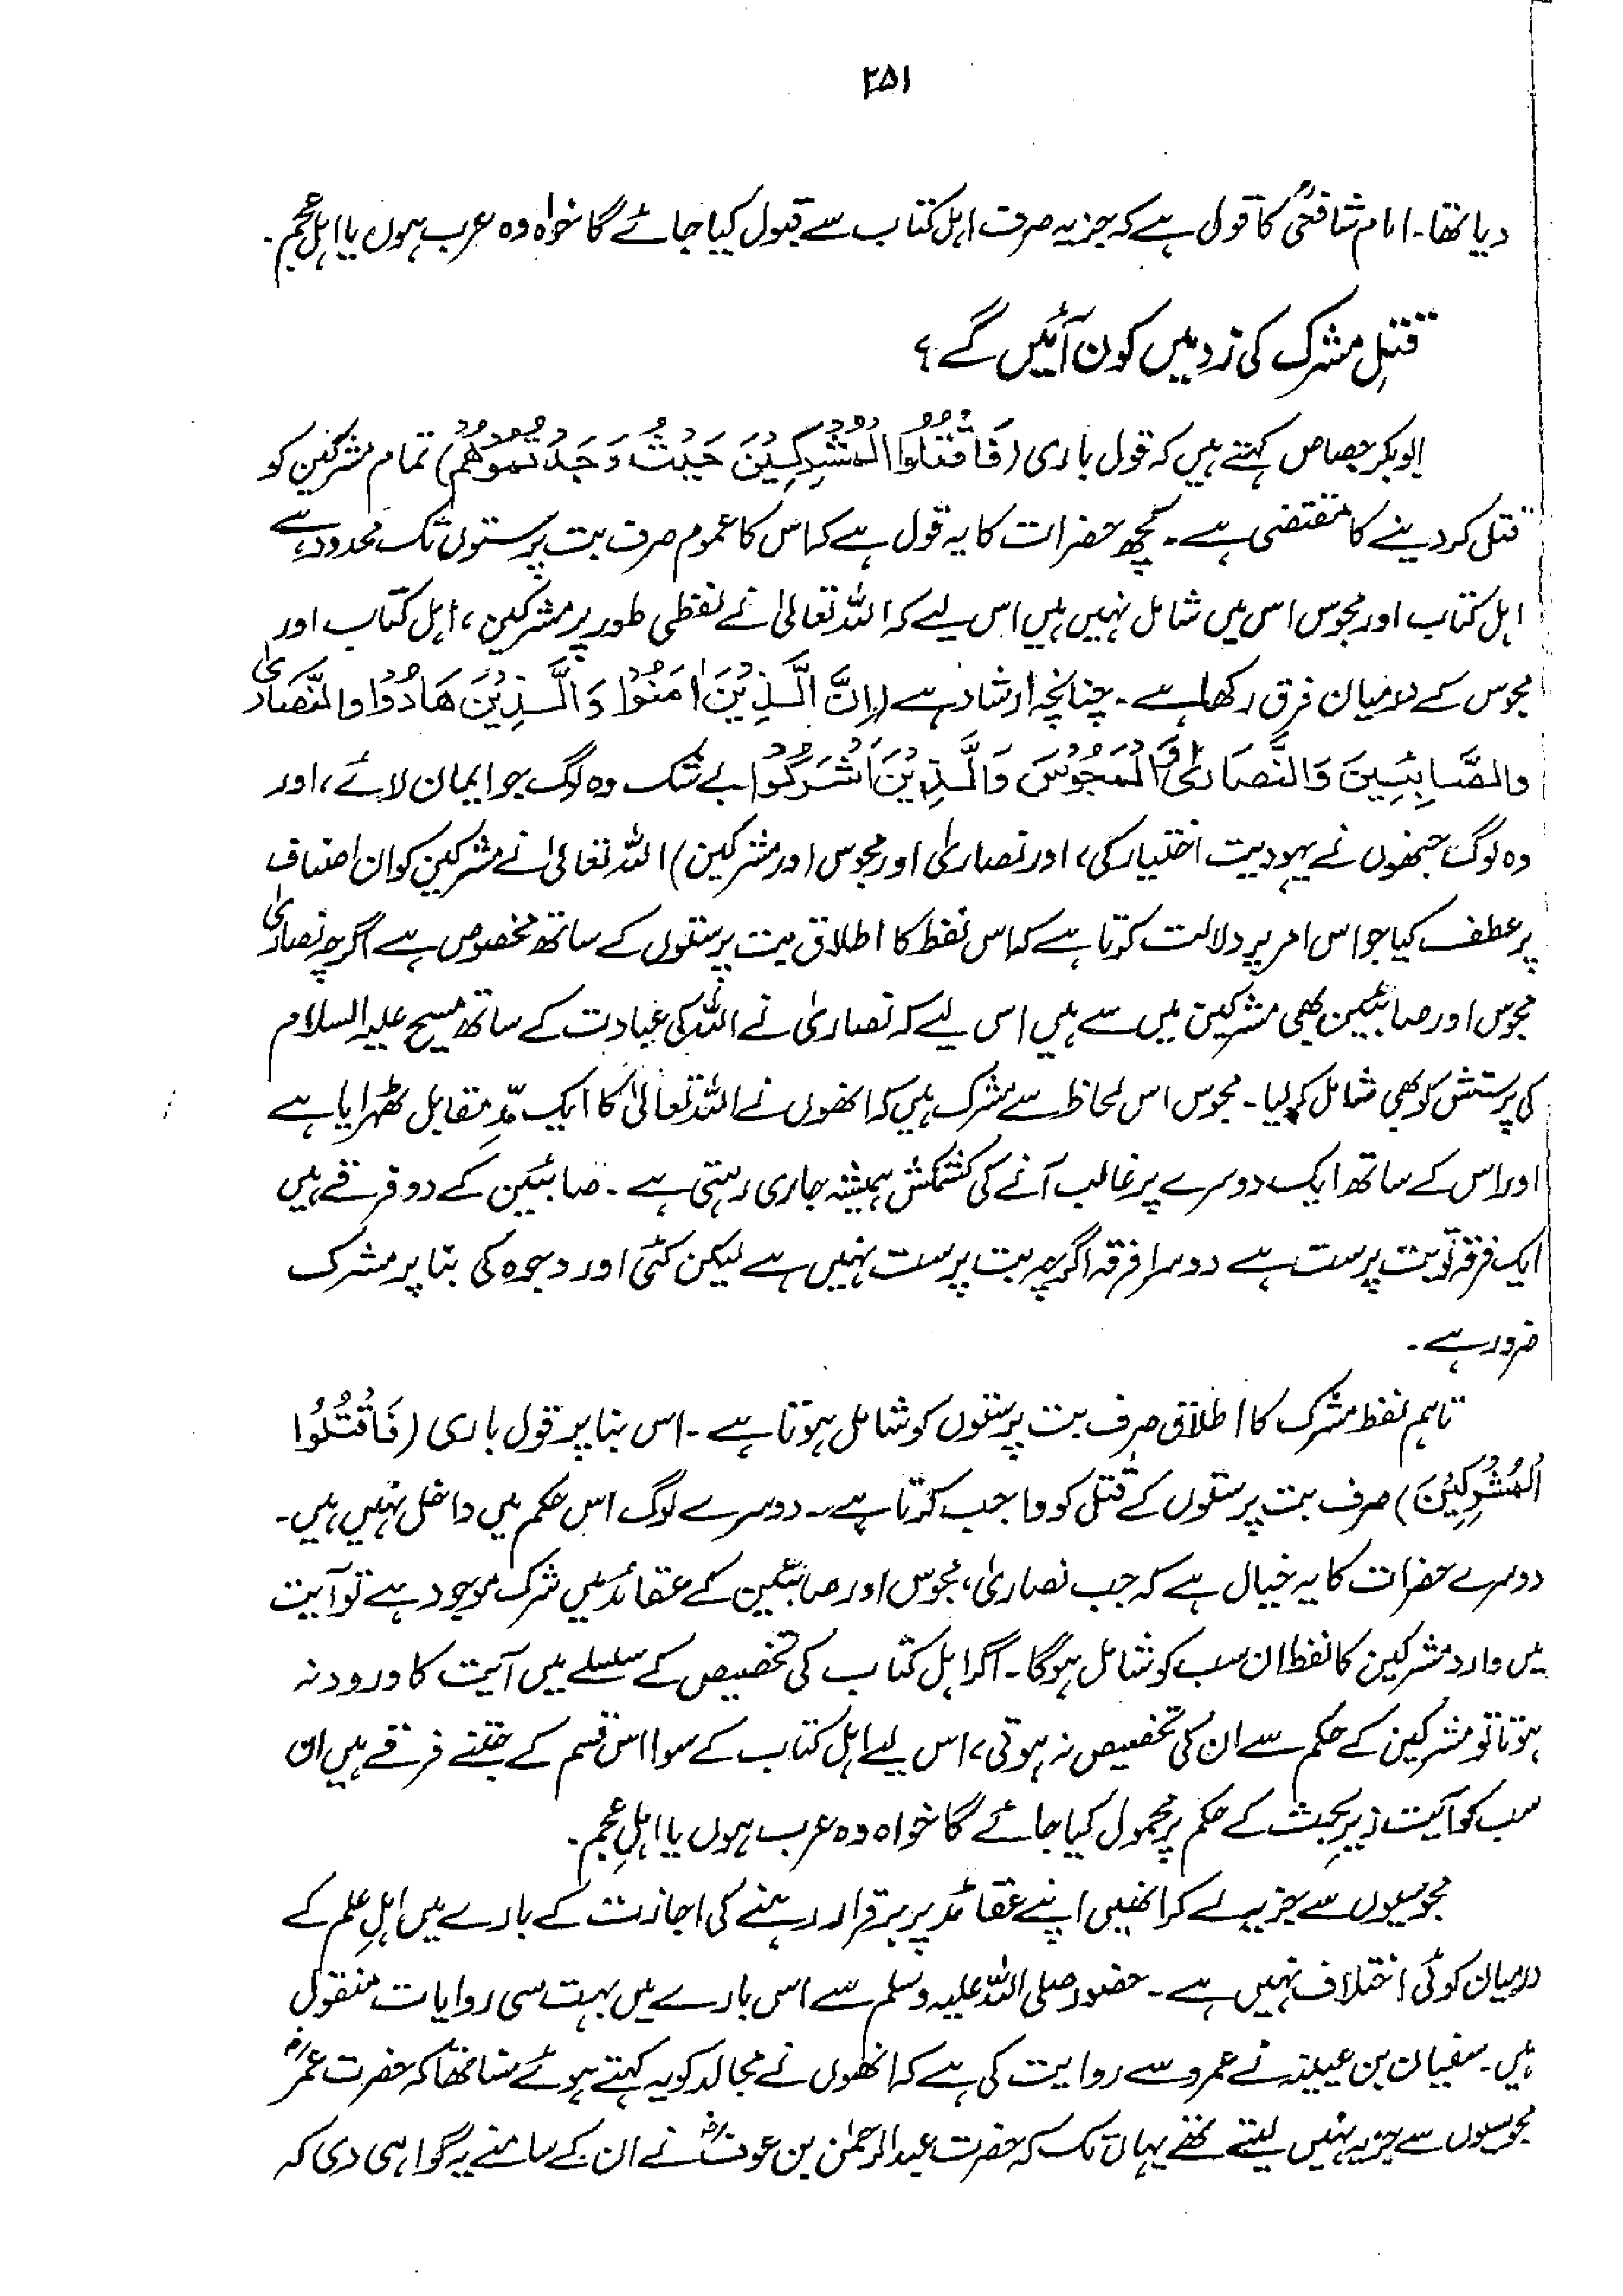 ۲۵۱
دیا تھا۔ امام شافعیؒ کا قول ہے کہ جزیہ صرف اہل کتاب سے قبول کیا جائے گا خواہ وہ عرب ہوں یا اہل عجم۔
قتلِ مشرک کی زد میں کون آئیں گے ؟
ابوبکر جصاص کہتے ہیں کہ قول باری (فَاقْتُلُوا الْمُشْرِكِيْنَ حَيْثُ وَجَدْتُمُوْهُمْ) تمام مشرکین کو
قتل کر دینے کا مقتضی ہے۔ کچھ حضرات کا یہ قول ہے کہ اس کا عموم صرف بت پرستوں تک محدود ہے
اہل کتاب اور مجوس اس میں شامل نہیں ہیں اس لیے کہ اللہ تعالیٰ نے لفظی طور پر مشرکین، اہل کتاب اور
مجوس کے درمیان فرق رکھا ہے۔ چنانچہ ارشاد ہے (اِنَّ الَّذِيْنَ اٰمَنُوْا وَالَّذِيْنَ هَادُوْا والنَّصَارٰى
والصَّابِئِيْنَ وَالنَّصَارٰى وَالْمَجُوْسَ وَالَّذِيْنَ اَشْرَكُوْا بے شک وہ لوگ جو ایمان لائے، اور
وہ لوگ جنھوں نے یہودیت اختیار کی، اور نصاریٰ اور مجوس اور مشرکین) اللہ تعالیٰ نے مشرکین کو ان اصناف
پر عطف کیا جو اس امر پر دلالت کرتا ہے کہ اس لفظ کا اطلاق بت پرستوں کے ساتھ مخصوص ہے اگرچہ نصاریٰ
مجوس اور صابئین بھی مشرکین میں سے ہیں اس لیے کہ نصاریٰ نے اللہ کی عبادت کے ساتھ مسیح علیہ السلام
کی پرستش کو بھی شامل کر لیا۔ مجوس اس لحاظ سے مشرک ہیں کہ انھوں نے اللہ تعالیٰ کا ایک مدِّ مقابل ٹھہرایا ہے
اور اس کے ساتھ ایک دوسرے پر غالب آنے کی کشمکش ہمیشہ جاری رہتی ہے۔ صابئین کے دو فرقے ہیں
ایک فرقہ تو بت پرست ہے دوسرا فرقہ اگرچہ بت پرست نہیں ہے لیکن کئی اور وجوہ کی بنا پر مشرک
ضرور ہے۔
تاہم لفظ مشرک کا اطلاق صرف بت پرستوں کو شامل ہوتا ہے۔ اس بنا پر قول باری (فَاقْتُلُوا
الْمُشْرِكِيْنَ) صرف بت پرستوں کے قتل کو واجب کرتا ہے۔ دوسرے لوگ اس حکم میں داخل نہیں ہیں۔
دوسرے حضرات کا یہ خیال ہے کہ جب نصاریٰ، مجوس اور صابئین کے عقائد میں شرک موجود ہے تو آیت
میں وارد مشرکین کا لفظ ان سب کو شامل ہوگا۔ اگر اہل کتاب کی تخصیص کے سلسلے میں آیت کا ورود نہ
ہوتا تو مشرکین کے حکم سے ان کی تخصیص نہ ہوتی، اس لیے اہل کتاب کے سوا اس قسم کے جتنے فرقے ہیں ان
سب کو آیت زیرِ بحث کے حکم پر محمول کیا جائے گا خواہ وہ عرب ہوں یا اہلِ عجم۔
مجوسیوں سے جزیہ لے کر انھیں اپنے عقائد پر برقرار رہنے کی اجازت کے بارے میں اہلِ علم کے
درمیان کوئی اختلاف نہیں ہے۔ حضور صلی اللہ علیہ وسلم سے اس بارے میں بہت سی روایات منقول
ہیں۔ سفیان بن عیینہ نے عمرو سے روایت کی ہے کہ انھوں نے مجالد کو یہ کہتے ہوئے سنا تھا کہ حضرت عمرؓ
مجوسیوں سے جزیہ نہیں لیتے تھے یہاں تک کہ حضرت عبدالرحمٰن بن عوفؓ نے ان کے سامنے یہ گواہی دی کہ